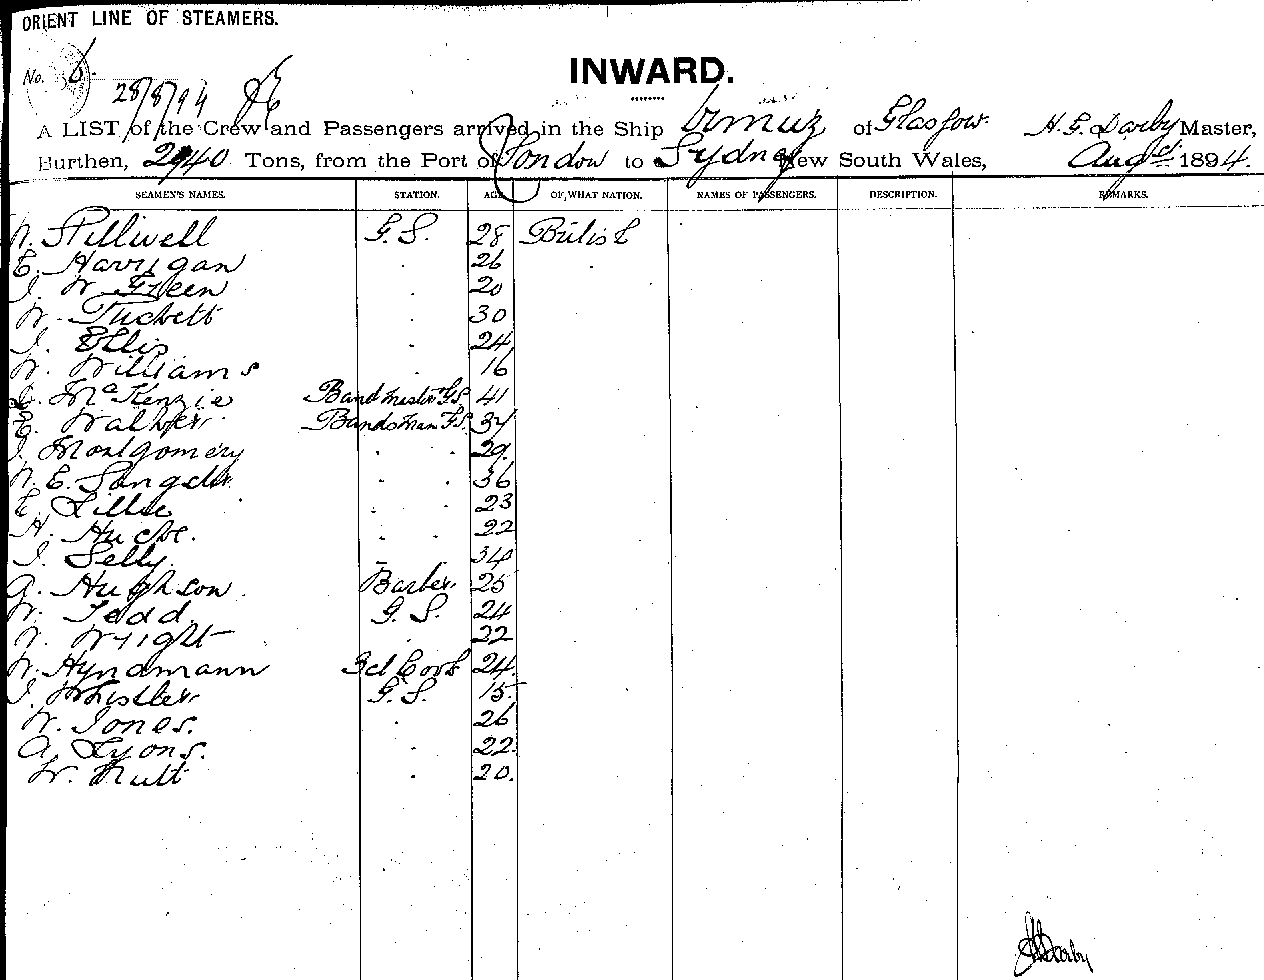 ORIENT LINE OF STEAMERS.
No. 6.
INWARD.
28/8/94
A LIST of the Crew and Passengers arrived in the Ship Ormuz of Glasgow. H. E. Darby Master,
Burthen, 2940 Tons, from the Port of London to Sydney New South Wales, Augst 1894.
SEAMEN'S NAMES. STATION. AGE OF WHAT NATION. NAMES OF PASSENGERS. DESCRIPTION. REMARKS.
W. Stillwell G.S. 28 British
E. Harrigan . 26 .
J. W. Green . 20
W. Tuckett . 30
J. Ellis . 24
W. Williams 16
McKenzie Bandmaster F.S. 41
E. Walker Bandsman F.S. 34
J. Montgomery . . 29.
W. E. Sangster . . 36
E. Lillie . . 23
H. Hucke. . . 22
J. Selby. 34
A. Hughson. Barber. 25
W. Todd. G.S. 24
Wright . 22
W. Hyndmann 3d Cook 24.
J. Whistler G.S. 15
W. Jones. . 26
A. Lyons. . 22.
W. Nutt . 20.
H E Darby